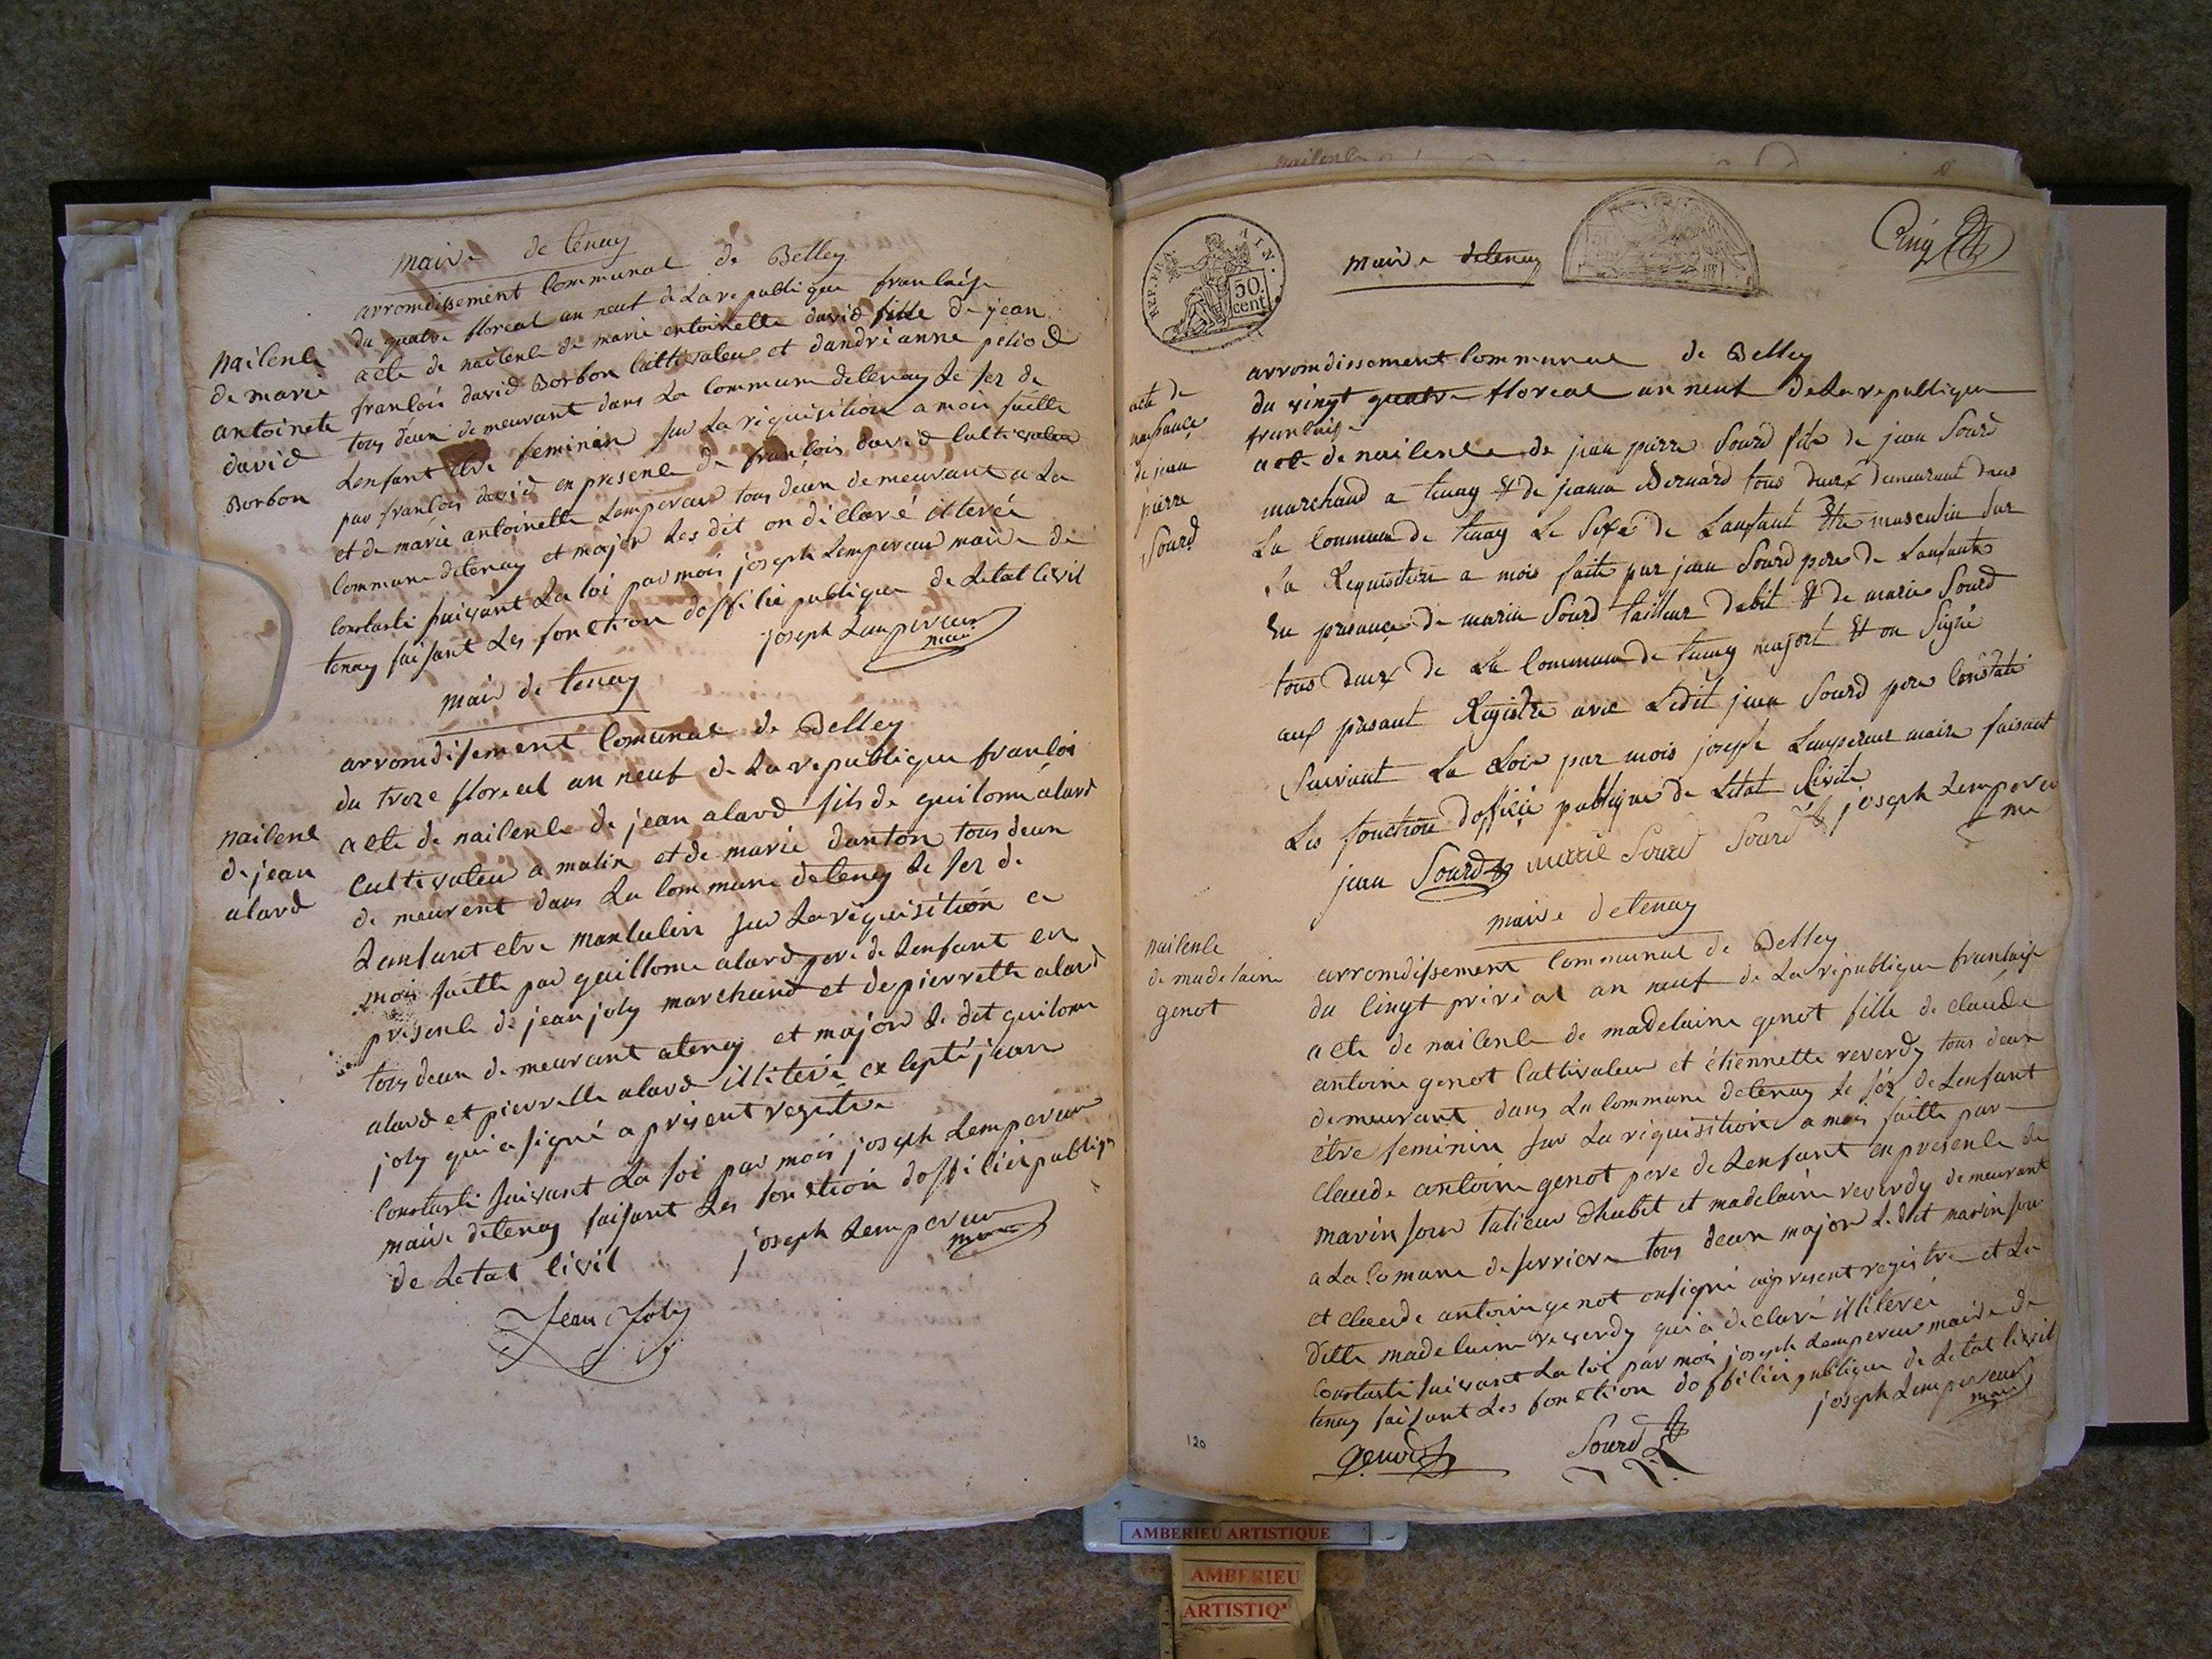 maire de tenay
arromdissement Communal de Belley
du quatre floreal an neuf de La republique francaise
nailence
de marie
antoinete
david
Borbon
acte de nailence de marie entoinette david fille de jean
francois david Borbon Cultivateur et dandrianne peliod
tous deux demeurant dans La Commune detenay Le sez de
Lenfant etre feminin sur La requisition a moi faitte
par francois david en presence de francois david Cultivateur
et de marie antoinette Lempereur tous deux demeurant a La
Commune detenay et major Les dit on declaré illeteré
Constasté suivant La loi par moi joseph Lempereur maire de
tenay faisant Les fonction dofficié publique de Letat Civil
joseph Lempereur
maire
mair de tenay
arromdisement Comunal de Belley
du treze floreal an neuf de La republique francois
nailence
de jean
alard
acte de nailence de jean alard fils de guilome alard
Cultivateur a malix et de marie danton tous deux
demeurent dans La Commune detenay Le sez de
Lanfant etre masculin sur La requisition a
moi faitte par guillome alard pere de Lenfant en
presence de jean joly marchand et de pierrette alard
tous deux demeurant atenay et major Le dit guilome
alard et pierrette alard illiteré exlepté jean
joly qui a signé a present registre
Constasté suivant La loi par moi joseph Lempereur
maire detenay faisant Les fonction dofficier publiq
de Letat Civil
joseph Lempereur
maire
Jean Joly
REP. FRA.
AIN.
50.
cent.
maire detenay
Cinq
acte de
naissance
de jean
pierre
Sourd
arromdissement Communal de Belley
du vingt quatre floreal an neuf de La republique
francaise
acte de nailence de jean pierre Sourd fils de jean Sourd
marchand a tenay & de jeanne Bernard tous deux demeurant dans
La Commune de tenay Le Sexe de Lanfant Etre masculin sur
La Requisition a mois faite par jean Sourd pere de Lanfant
En presance de marin Sourd tailleur dabit & de marie Sourd
tous deux de La Commune de tenay majort & on Signé
aux present Registre avec Ledit jean Sourd pere Constaté
Suivant La Loix par mois joseph Lempereur maire faisant
Les fonction dofficié publique de Letat Civile
jean Sourd marie Sourd Sourd joseph Lempereu
nailence
de madelaine
genot
maire detenay
arromdissement Communal de Belley
du Vingt prireal an neuf de La republique francaise
acte de nailence de madelaine genot fille de claude
antoine genot Cultivateur et étiennette reverdy tous deux
demeurant dans La Commune detenay Le séz de Lenfant
être feminin sur La requisition a moi faitte par
Claude antoine genot pere de Lenfant en presence de
marin sour talieur dhabit et madelaine reverdy demeurant
a La Comune de serriere tous deux major Le dit marin sour
et claude antoine genot onsigné aupresent registre et La
ditte madelaine reverdy qui a declaré illiteré
Constasté suivant La loi par moi joseph Lempereur maire de
tenay faisant Les fonction dofficier publique de Letat Civil
joseph Lempereur
maire
genod
Sourd
120
AMBERIEU ARTISTIQUE
AMBERIEU
ARTISTIQ